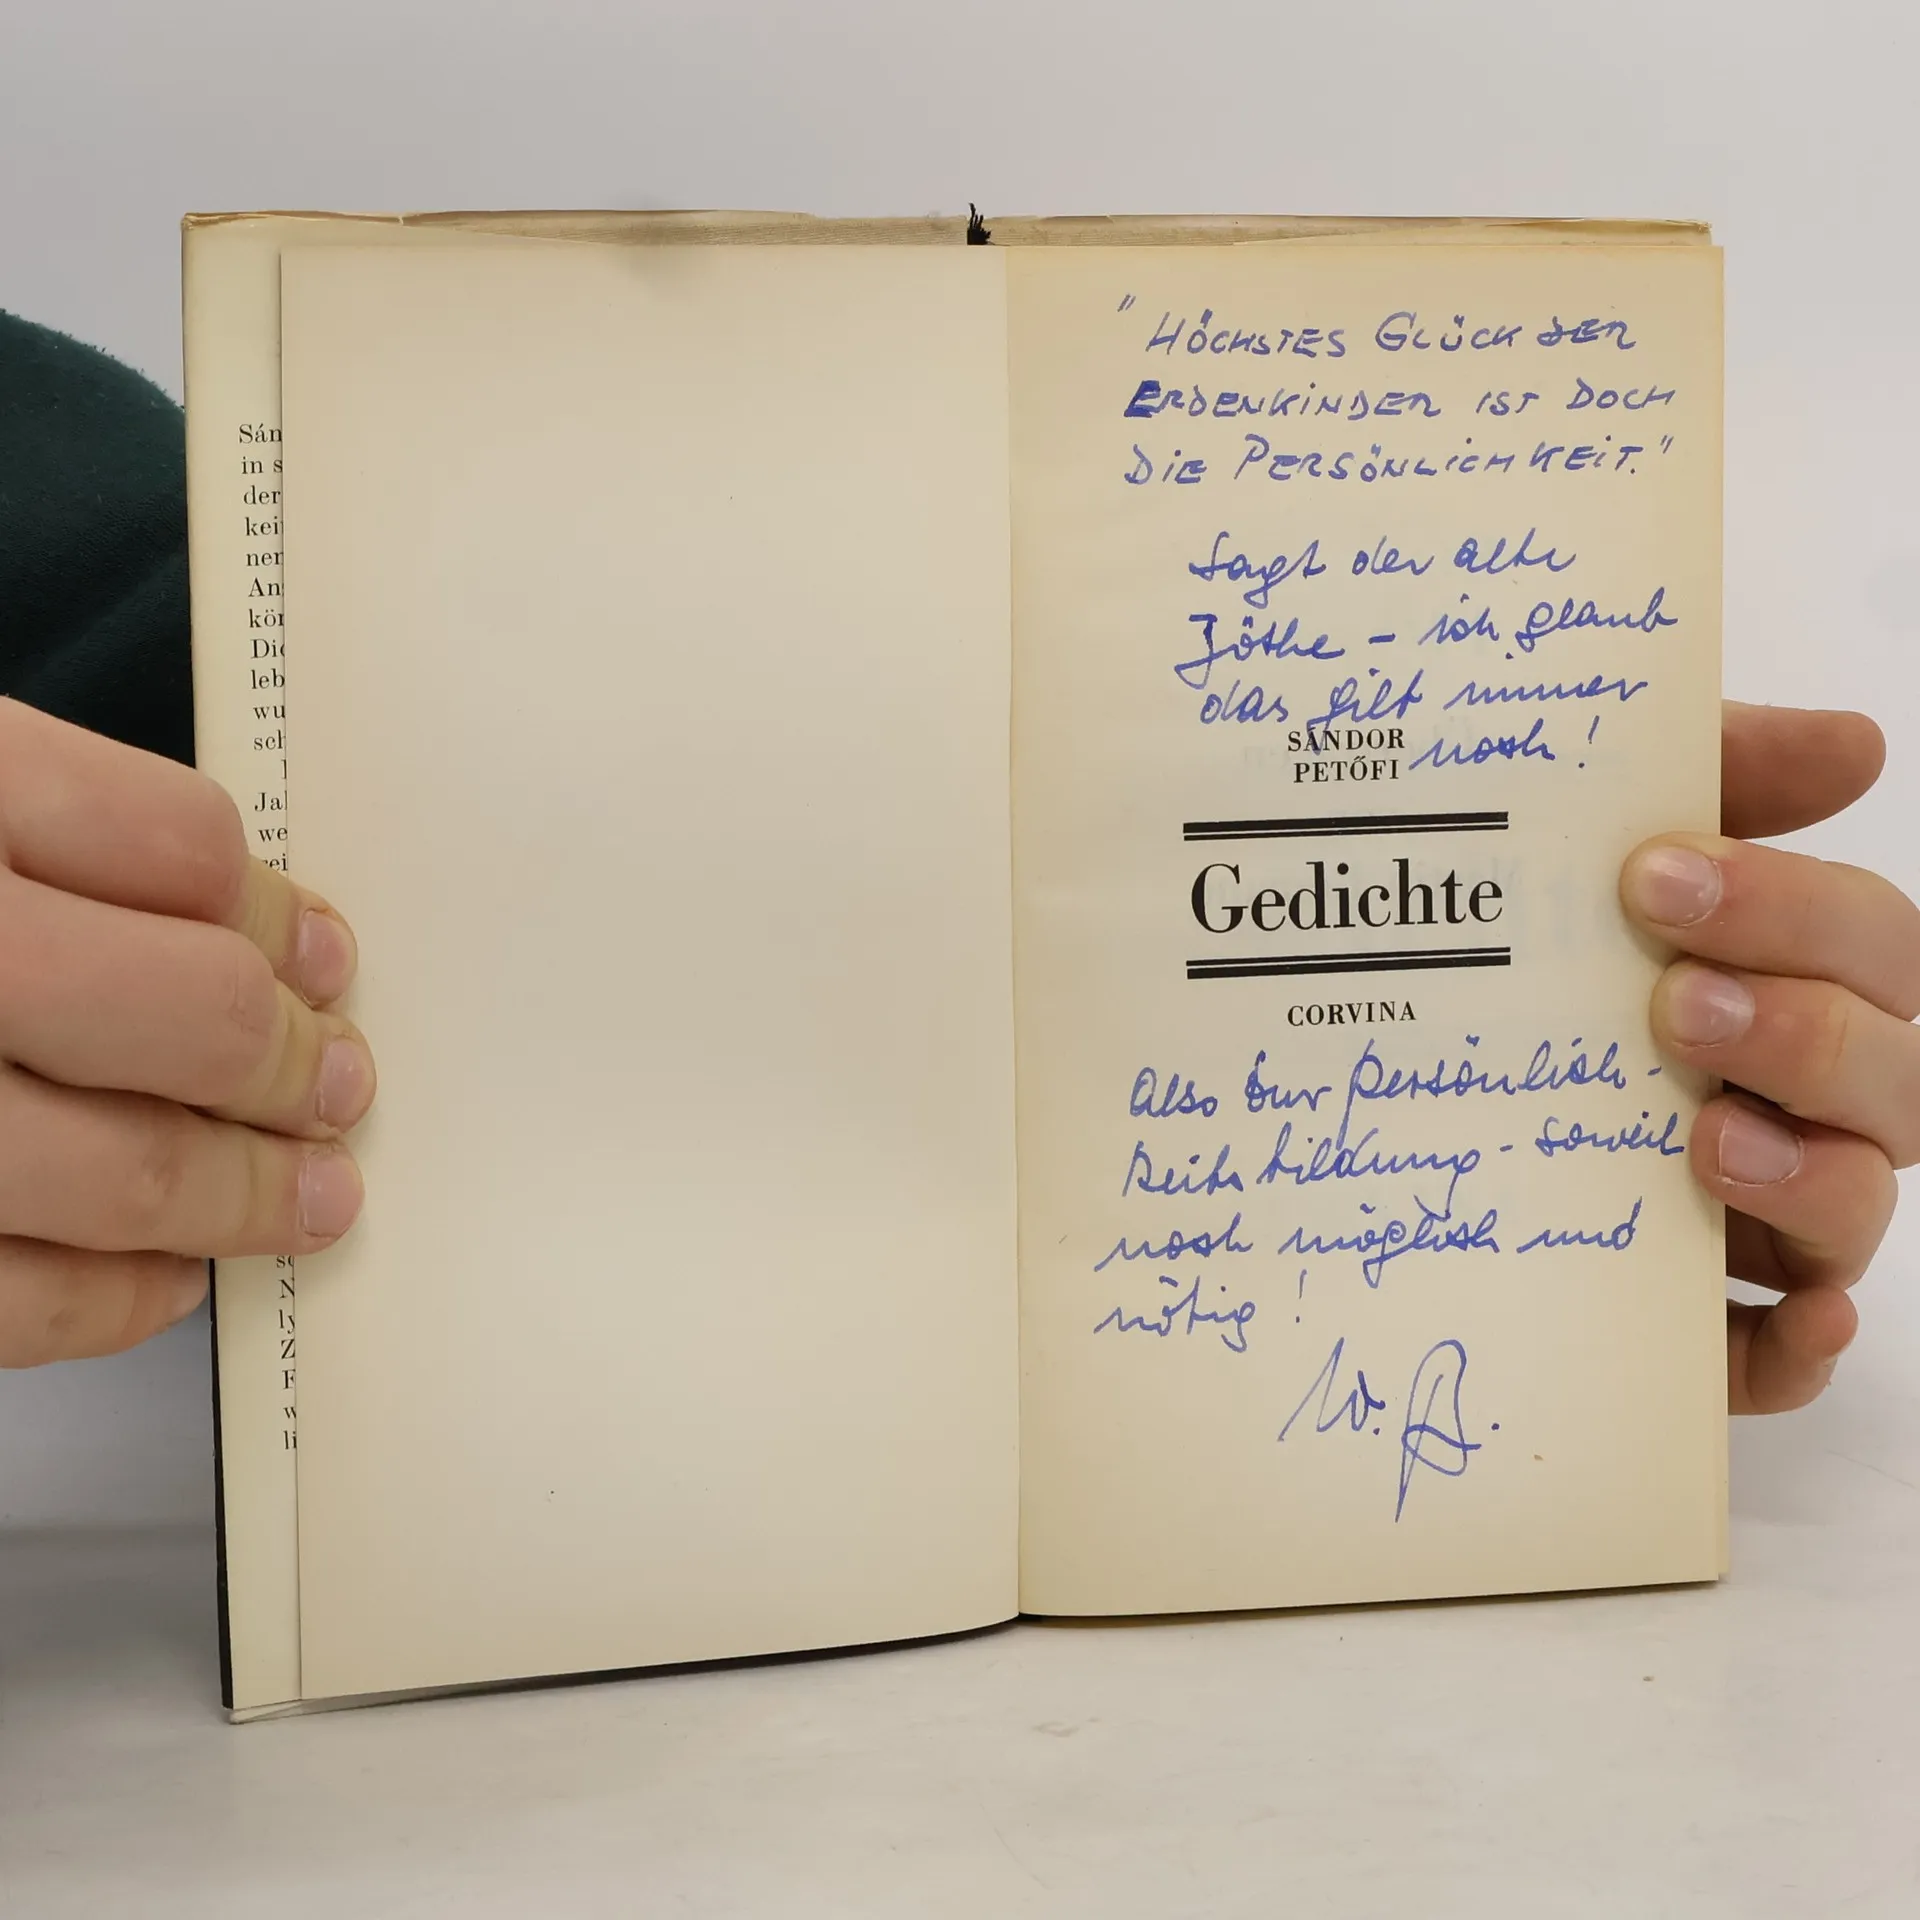 Sán
in s
der
kei
nen
An
kör
Die
leb
wu
sch
Jal
we
rei
so
N
ly
Z
F
w
li
"HÖCHSTES GLÜCK DER
ERDENKINDER IST DOCH
DIE PERSÖNLICHKEIT."
sagt der alte
Jöthe – ich glaub
das gilt immer
noch!
SÁNDOR
PETŐFI
Gedichte
CORVINA
Also zur Persönlich-
keitsbildung - soweit
noch möglich und
nötig!
W. B.